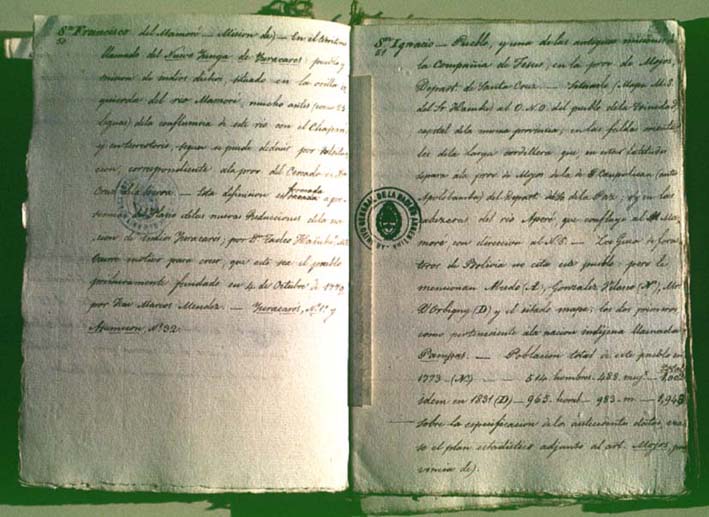 Sn. Francisco del Mamoré — Mision de) — En el territorio
50
llamado del Nuevo Yunga de Yuracarés; pueblo y
mision de indios dichos, situado en la orilla iz-
quierda del rio Mamoré, mucho antes
leguas) de la confluencia de este rio con el Chaparé,
y en territorio, segun se puede deducir por
cion, correspondiente a la prov. del Cercado en
Cruz de la Sierra — Esta definicion formada
sencia del Plano de las nuevas Reducciones de la na-
cion de Indios Yuracarés, por Dn. Tadeo Haenke
curre motivo para creer, que este sea el pueblo
primeramente fundado en 4 de Octubre de
por Fray Marcos Mendez. — Yuracarés, Nº 1º y
Asuncion, Nº 32.
Sn. Ignacio — Pueblo, y una de las antiguas misiones de
51
la Compañia de Jesus, en la prov. de Mojos,
Depart. de Santa Cruz — Situado (Mapa M.S.
del Sr. Haenke) al O.N.O. del pueblo de la Trinidad,
capital de la misma provincia, en las faldas orienta-
les de la larga cordillera, que, en estas latitudes
separa la prov. de Mojos de la de Caupolican (antes
Apolobamba) del Depart. de La Paz; y en las
cabezeras del rio Aperé que confluye al Ma-
moré con direccion al N.E. — Los Guia de foras-
teros de Bolivia no cita este pueblo; pero le
mencionan Alcedo (A), Gonzalez Velasco (N), Mr.
D'Orbigny (D) y el citado mapa; los dos primeros
como perteneciente a la nacion indigena llamada
Pampas. — Poblacion total de este pueblo en
total
1773 — (N) — — 514 hombres. 488 muj. —
idem en 1831 (D) — 965 homb. — 983 m. — 1,948
sobre la especificacion de los antecedentes datos, vea-
se el plan estadistico adjunto al art. Mojos, pro-
vincia de).
ARCHIVO GENERAL DE LA NACION ARGENTINA